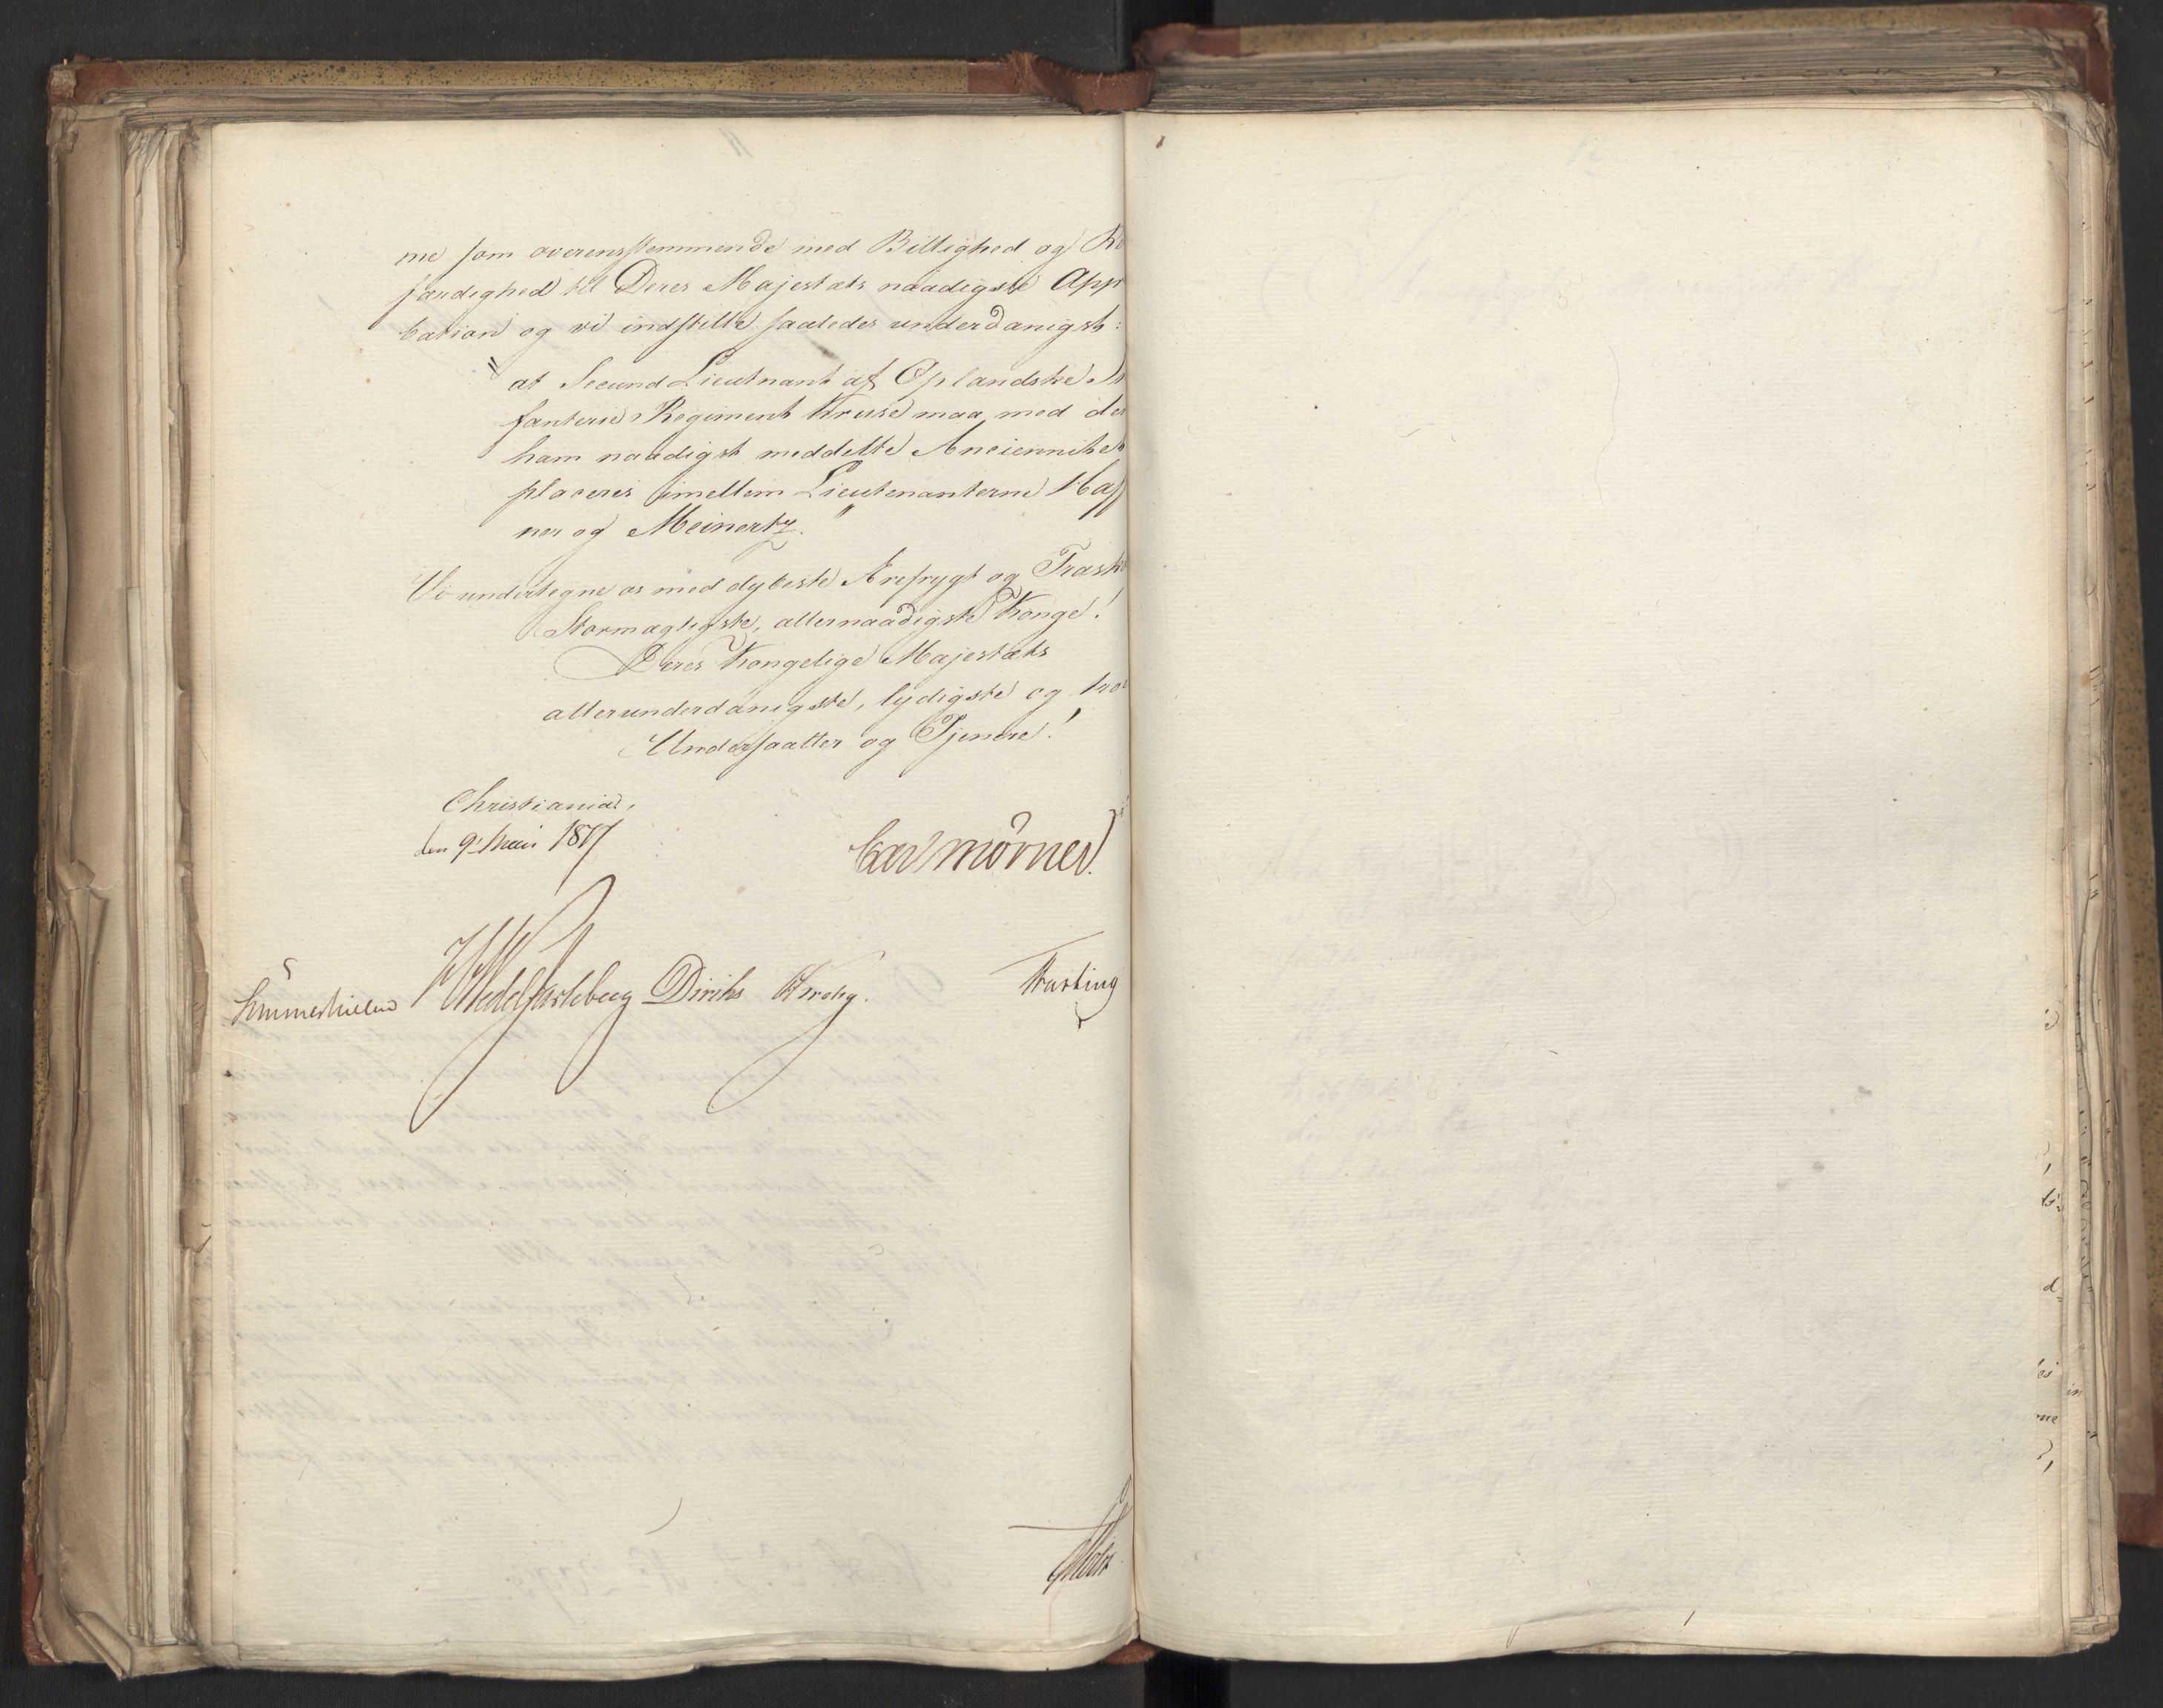 me som overensstemmende med Billighed og Re
færdighed til Deres Majestæts naadigste App
bation og vi indstille saaledes underdanigst:
"at Secund Lieutnant af Oplandske In
fanterie Regiment Kruse maa med de
ham naadigst meddelte Anciennitet
placeres imellem Lieutenanterne Haff
ner og Meinertz."
Vi undertegne os med dybeste Ærefrygt og Troska
Stormægtigste, allernaadigste Konge!
Deres Kongelige Majestæts
allerunderdanigste, lydigste og tro
Undersaatter og Tjenere!
Christiania,
den 9 Mai 1817
Carl Mörner.
Sommerhielm Wedel Jarlsberg Diriks Krohg. Fasting